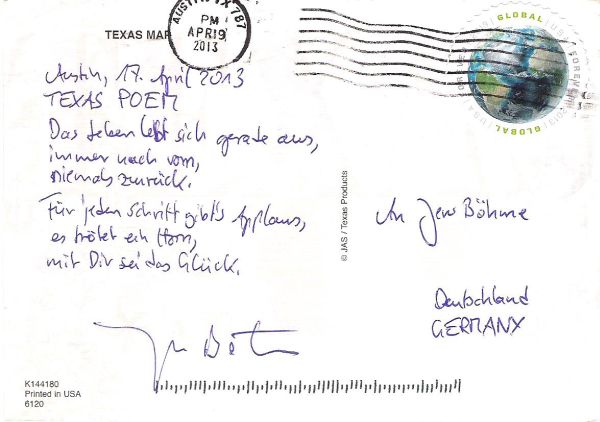 TEXAS MAP
AUSTIN TX 787
PM
APR 19
2013
GLOBAL
USA
FOREVER
2013
GLOBAL
Austin, 17. April 2013
TEXAS POEM
Das Leben lebt sich gerade aus,
immer nach vorn,
niemals zurück.
Für jeden Schritt gibt's Applaus,
es trötet ein Horn,
mit Dir sei das Glück.
© JAS / Texas Products
An Jens Böhme
Deutschland
GERMANY
K144180
Printed in USA
6120